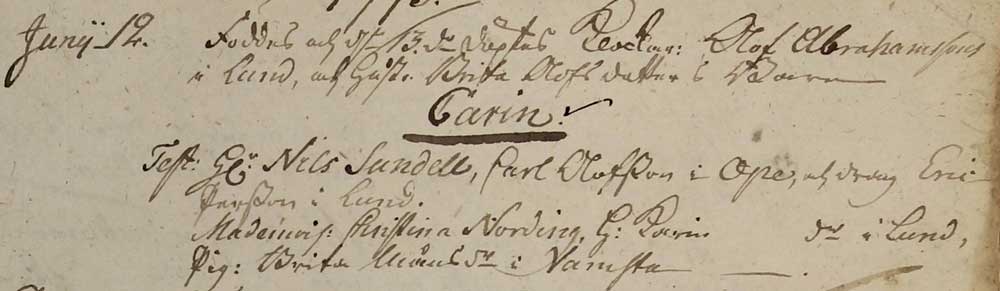 Junij 12. Foddes och d. 13. dr döptes Klockar: Olof Abrahamssons
i Lund, och Hust. Brita Olofs dotters Barn
Carin.
Test: Hr. Nils Sundell, Carl Olofsson i Ope, och dräng Eric
Persson i Lund.
Mademois: Christina Nording, H: Karin dr i Lund,
Pig: Brita Månsdr i Namsta